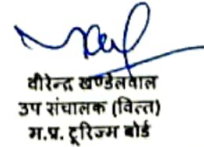 वीरेन्द्र खण्डेलवाल
उप संचालक (वित्त)
म.प्र. टूरिज्म बोर्ड